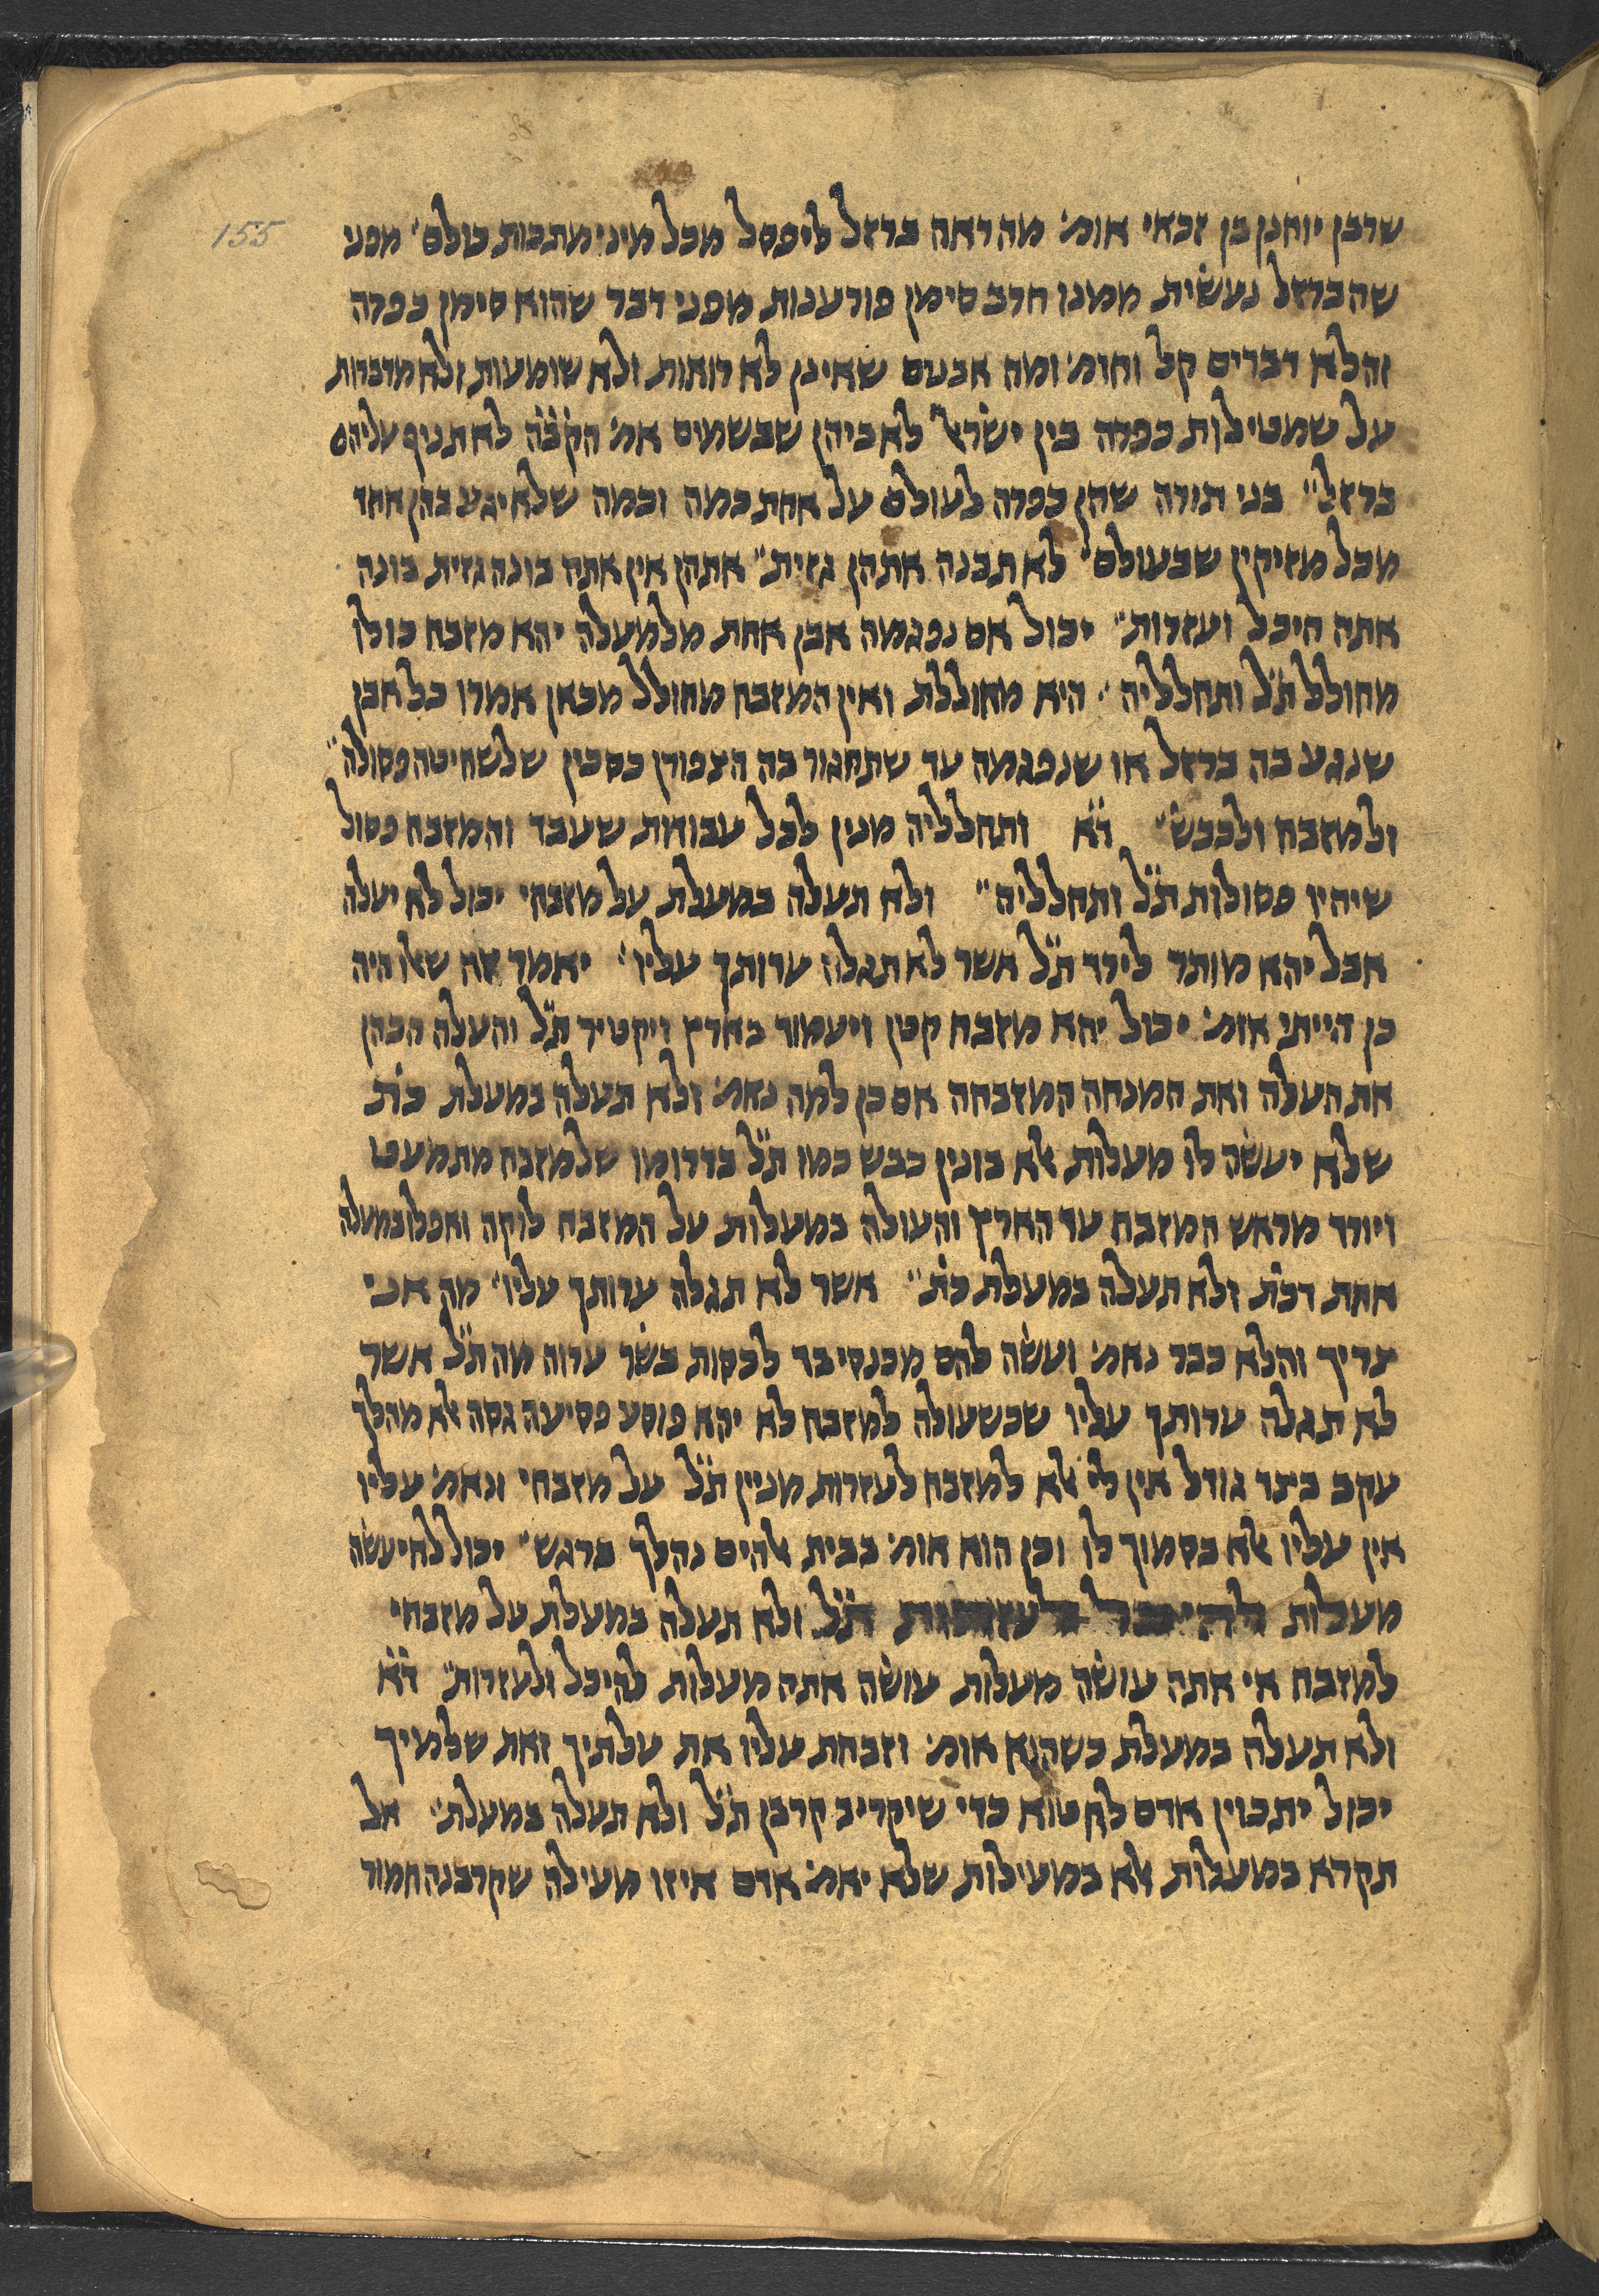 155
שרבן יוחנן בן זכאי אומ' מה ראה ברזל ליפסל מכל מיני מתכות כולם' מפני
שהברזל נעשית ממנו חרב סימן פורענות מפני דבר שהוא סימן כפרה
והלא דברים קל וחומ' ומה אבנים שאינן לא רואות ולא שומעות ולא מדברות
על שמטילות כפרה בין ישראל לאביהן שבשמים אמ' הקב"ה לא תניף עליהם
ברזל" בני תורה שהן כפרה לעולם על אחת כמה וכמה שלא יגע בהן אחד
מכל מזיקין שבעולם" לא תבנה אתהן גזית" אתהן אין אתה בונה גזית בונה
אתה היכל ועזרות" יכול אם נפגמה אבן אחת מלמעלה יהא מזבח כולו
מחולל ת"ל ותחלליה" היא מחוללת ואין המזבח מחולל מכאן אמרו כל אבן
שנגע בה ברזל או שנפגמה עד שתחגור בה הצפורן כסכין שלשחיטה פסולה"
ולמזבח ולכבש" ד"א ותחלליה מנין לכל עבודות שעבד והמזבח פסול
שיהיו פסולות ת"ל ותחלליה" ולא תעלה במעלת על מזבחי יכול לא יעלה
אבל יהא מותר לירד ת"ל אשר לא תגלה ערותך עליו" יאמר זה שאלו היה
כן הייתי אומ' יכול יהא מזבח קטן ויעמוד בארץ ויקטיר ת"ל והעלה הכהן
את העלה ואת המנחה המזבחה אם כן למה נאמ' ולא תעלה במעלת כת
שלא יעשה לו מעלות אלא בונין כבש כמו ת"ל בדרומו שלמזבח מתמעט
ויורד מראש המזבח עד הארץ והעולה במעלות על המזבח לוקה ואפלו במעלה
אחת דכת ולא תעלה במעלת כת" אשר לא תגלה ערותך עליו" מה אני
צריך והלא כבר נאמ' ועשה להם מכנסי בד לכסות בשר ערוה מה ת"ל אשר
לא תגלה ערותך עליו שכשעולה למזבח לא יהא פוסע פסיעה גסה אלא מהלך
עקב בצד גודל אין לי אלא למזבח לעזרות מניין ת"ל על מזבחי ונאמ' עליו
אין עליו אלא בסמוך לו וכן הוא אומ' בבית אלהים נהלך ברגש" יכול לא יעשה
מעלות להיכל לעזרות ת"ל ולא תעלה במעלת על מזבחי
למזבח אי אתה עושה מעלות עושה אתה מעלות להיכל ולעזרות" ד"א
ולא תעלה במעלת כשהוא אומ' וזבחת עליו את עלתיך ואת שלמיך
יכול יתכוין אדם לחטוא כדי שיקריב קרבן ת"ל ולא תעלה במעלת" אל
תקרא במעלות אלא במעילות שלא יאמ' אדם איזו מעילה שקרבנה חמור